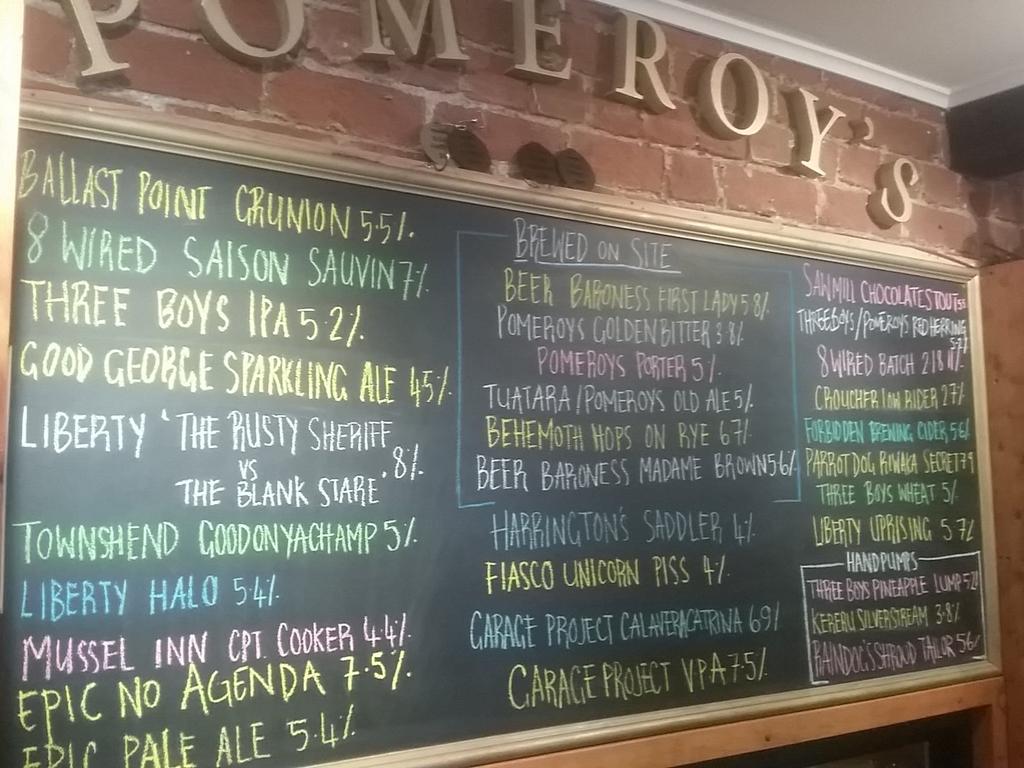 POMEROY'S
BALLAST POINT GRUNION 5.5%.
8 WIRED SAISON SAUVIN 7%
THREE BOYS IPA 5.2%.
GOOD GEORGE SPARKLING ALE 4.5%.
LIBERTY 'THE RUSTY SHERIFF
VS
THE BLANK STARE' 8%.
TOWNSHEND GOODONYACHAMP 5%.
LIBERTY HALO 5.4%.
MUSSEL INN CPT. COOKER 4.4%.
EPIC NO AGENDA 7.5%.
EPIC PALE ALE 5.4%.
BREWED ON SITE
BEER BARONESS FIRST LADY 5.8%.
POMEROYS GOLDEN BITTER 3.8%.
POMEROYS PORTER 5%.
TUATARA/POMEROYS OLD ALE 5%.
BEHEMOTH HOPS ON RYE 6.7%.
BEER BARONESS MADAME BROWN 5.6%.
HARRINGTON'S SADDLER 4%.
FIASCO UNICORN PISS 4%.
GARAGE PROJECT CALAVERACATRINA 6.9%.
GARAGE PROJECT VPA 7.5%.
SAWMILL CHOCOLATE STOUT
THREE BOYS/POMEROYS RED HERRING
5.2%
8 WIRED BATCH 218 11%.
CROUCHER LOW RIDER 2.7%.
FORBIDDEN BREWING CIDER 5.6%
PARROTDOG RIWAKA SECRET 7.9
THREE BOYS WHEAT 5%.
LIBERTY UPRISING 5.7%.
HANDPUMPS
THREE BOYS PINEAPPLE LUMP
KERERU SILVERSTREAM 3.8%.
RAINDOGS SHROUD TAILOR 5.6%.